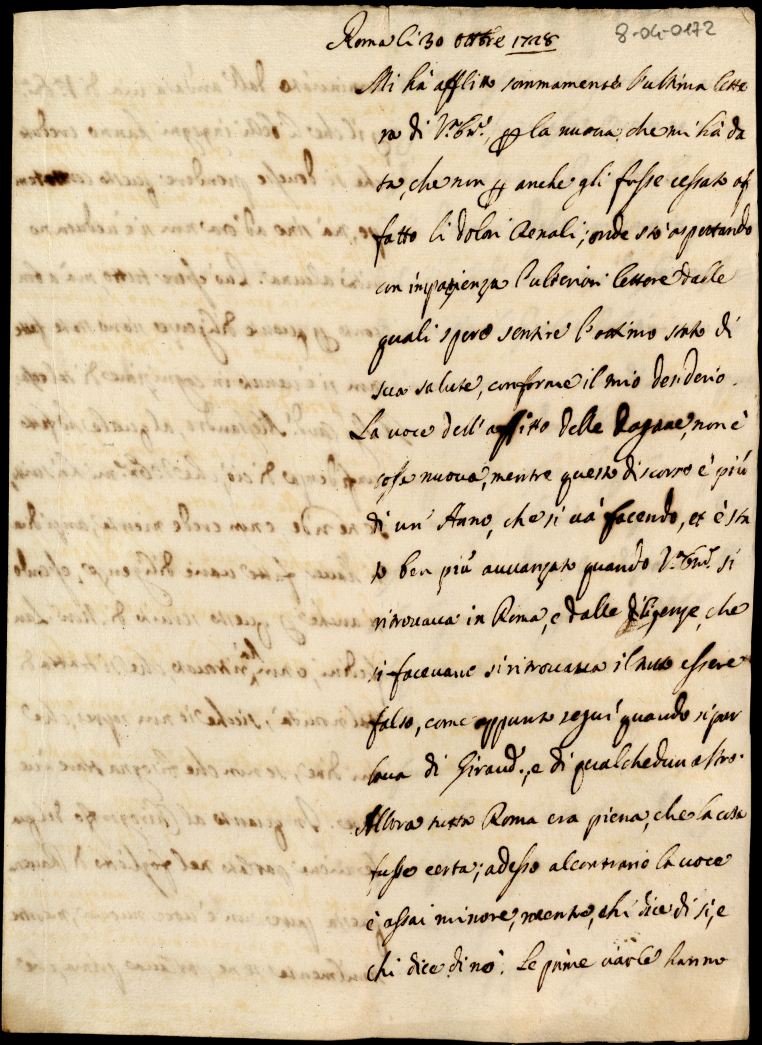 Roma li 30 ottbre 1728
8-04-0172
Mi hà afflitto sommamente l'ultima lette
ra di V. Em., la nuova che mi hà da
ta, che non anche gli fusse cessato af
fatto li dolori Renali; onde stò aspettando
con impazienza l'ulteriori lettere dalle
quali spero sentire l'ottimo stato di
sua salute, conforme il mio desiderio.
La voce dell'affitto delle Dogane, non è
cosa nuova, mentre questo discorso è più
di un' Anno, che si và facendo, et è sta
to ben più avvanzato quando V. Em. si
ritrovava in Roma, e dalle diligenze, che
si facevano si ritrovava il tutto essere
falso, come appunto seguì quando si par
lava di Giraud., e di qualchedun altro.
Allora tutta Roma era piena, che la cosa
fusse certa; adesso al contrario la voce
è assai minore, mentre, chi dice di sì, e
chi dice di nò. Le prime hanno